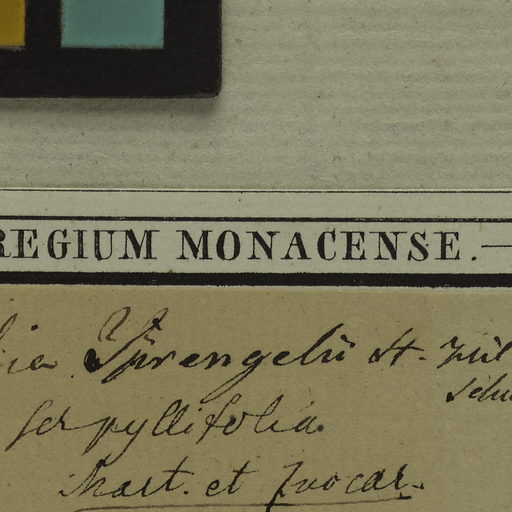 REGIUM MONACENSE.
Sprengelii St. Hil
serpyllifolia
Mart. et Zuccar.